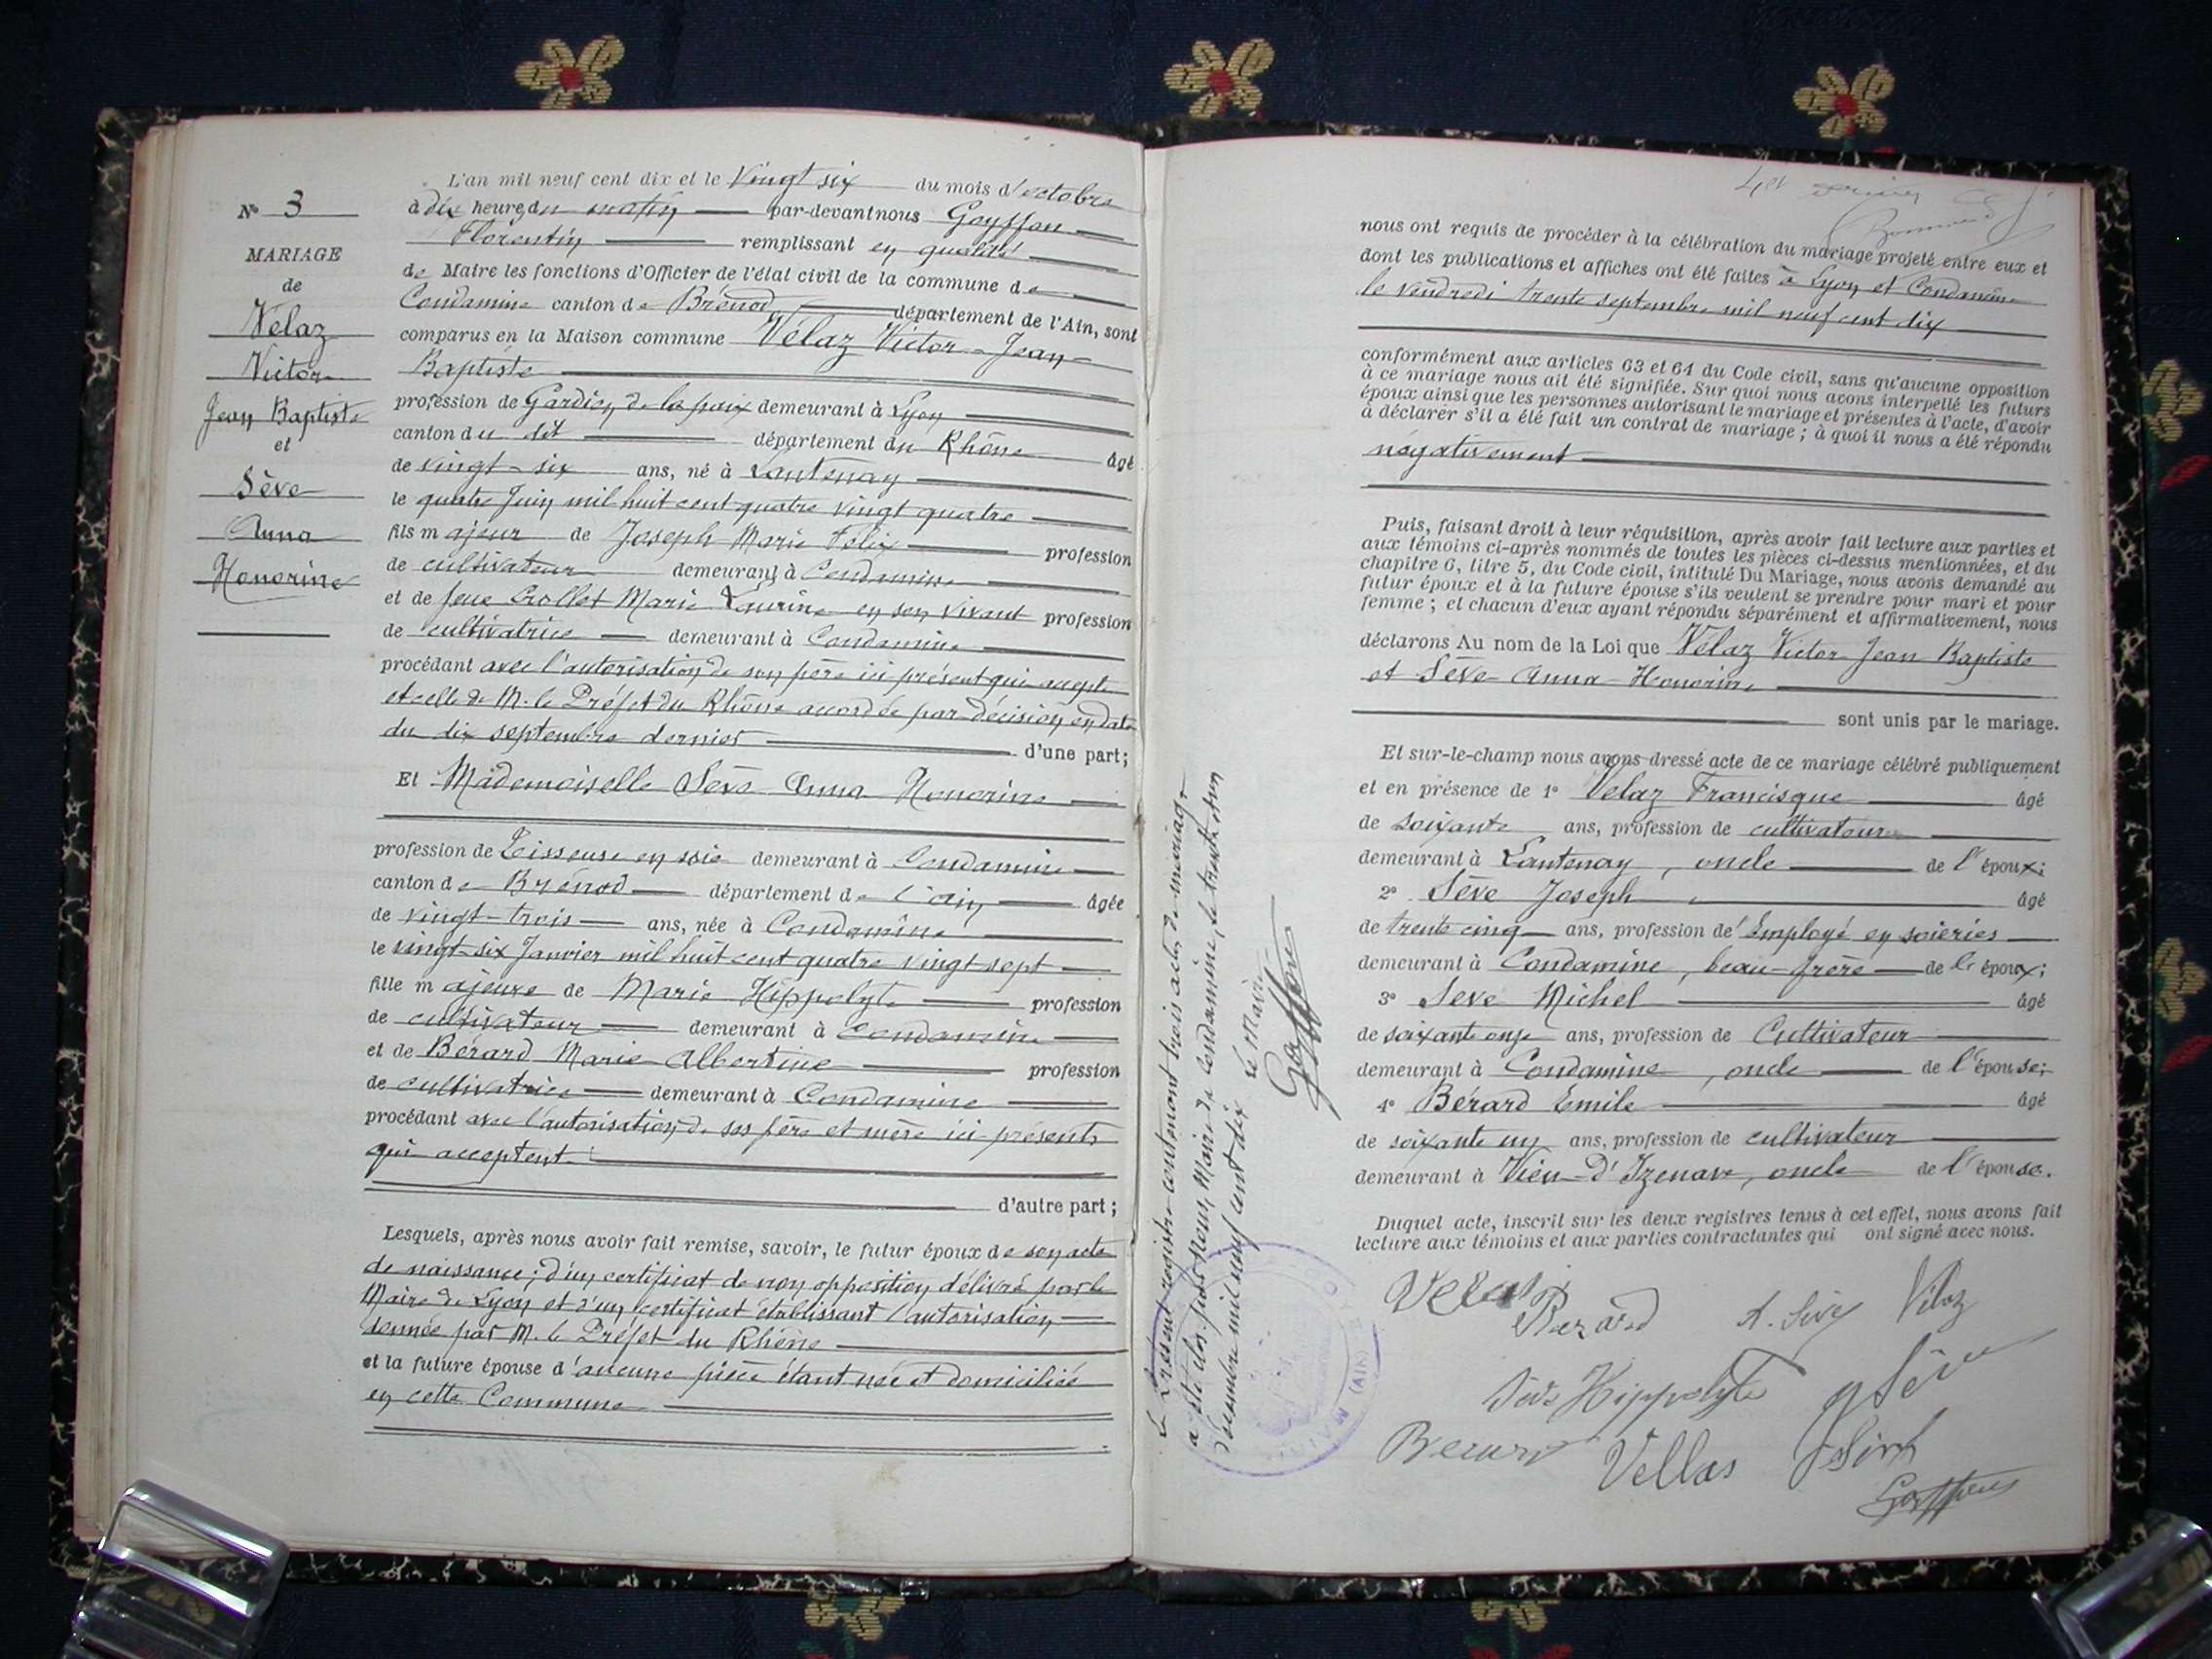 N° 3
MARIAGE
de
Vélaz
Victor
Jean Baptiste
et
Sève
Anna
Honorine
L'an mil neuf cent dix et le vingt six du mois d'octobre
à dix heures du matin par-devant nous Goyffon
Florentin remplissant en qualité
de Maire les fonctions d'Officier de l'état civil de la commune de
Condamine canton de Brénod département de l'Ain, sont
comparus en la Maison commune Vélaz Victor Jean
Baptiste
profession de Gardien de la paix demeurant à Lyon
canton du dit département du Rhône âgé
de vingt-six ans, né à Lantenay
le quatre Juin mil huit cent quatre vingt quatre
fils majeur de Joseph Marie Félix profession
de cultivateur demeurant à Condamine
et de feue Crollet Marie Laurine en son vivant profession
de cultivatrice demeurant à Condamine
procédant avec l'autorisation de son père ici présent qui accepte
et celle de M. le Préfet du Rhône accordée par décision en date
du dix septembre dernier d'une part;
Et Mademoiselle Sève Anna Honorine
profession de Tisseuse en soie demeurant à Condamine
canton de Brénod département de l'ain âgée
de vingt-trois ans, née à Condamine
le vingt-six Janvier mil huit cent quatre vingt sept
fille majeure de Marie Hippolyte profession
de cultivateur demeurant à Condamine
et de Bérard Marie Albertine profession
de cultivatrice demeurant à Condamine
procédant avec l'autorisation de ses père et mère ici présents
qui acceptent
d'autre part;
Lesquels, après nous avoir fait remise, savoir, le futur époux de son acte
de naissance; d'un certificat de non opposition délivré par le
Maire de Lyon et d'un certificat établissant l'autorisation
donnée par M. le Préfet du Rhône
et la future épouse d'aucune pièce étant née et domiciliée
en cette Commune
Le Présent registre contenant trois actes de mariage
a été clos par Nous, Maire de Condamine, le trente et un
décembre mil neuf cent dix
le Maire
Goyffon
MAIRIE
(AIN)
nous ont requis de procéder à la célébration du mariage projeté entre eux et
dont les publications et affiches ont été faites à Lyon et Condamine
le vendredi trente septembre mil neuf cent dix
conformément aux articles 63 et 64 du Code civil, sans qu'aucune opposition
à ce mariage nous ait été signifiée. Sur quoi nous avons interpellé les futurs
époux ainsi que les personnes autorisant le mariage et présentes à l'acte, d'avoir
à déclarer s'il a été fait un contrat de mariage; à quoi il nous a été répondu
négativement
Puis, faisant droit à leur réquisition, après avoir fait lecture aux parties et
aux témoins ci-après nommés de toutes les pièces ci-dessus mentionnées, et du
chapitre 6, titre 5, du Code civil, intitulé Du Mariage, nous avons demandé au
futur époux et à la future épouse s'ils veulent se prendre pour mari et pour
femme; et chacun d'eux ayant répondu séparément et affirmativement, nous
déclarons Au nom de la Loi que Vélaz Victor Jean Baptiste
et Sève Anna Honorine
sont unis par le mariage.
Et sur-le-champ nous avons dressé acte de ce mariage célébré publiquement
et en présence de 1° Velaz Francisque âgé
de soixante ans, profession de cultivateur
demeurant à Lantenay, oncle de l'époux;
2° Sève Joseph âgé
de trente cinq ans, profession d'Employé en soieries
demeurant à Condamine, beau-frère de l'époux;
3° Seve Michel âgé
de soixante onze ans, profession de Cultivateur
demeurant à Condamine, oncle de l'épouse;
4° Bérard Emile âgé
de soixante un ans, profession de cultivateur
demeurant à Vieu-D'Izenave, oncle de l'épouse.
Duquel acte, inscrit sur les deux registres tenus à cet effet, nous avons fait
lecture aux témoins et aux parties contractantes qui ont signé avec nous.
Berard A. Sève Vélaz
Sève Hippolyte Sève
Berard Vellas
Goyffon